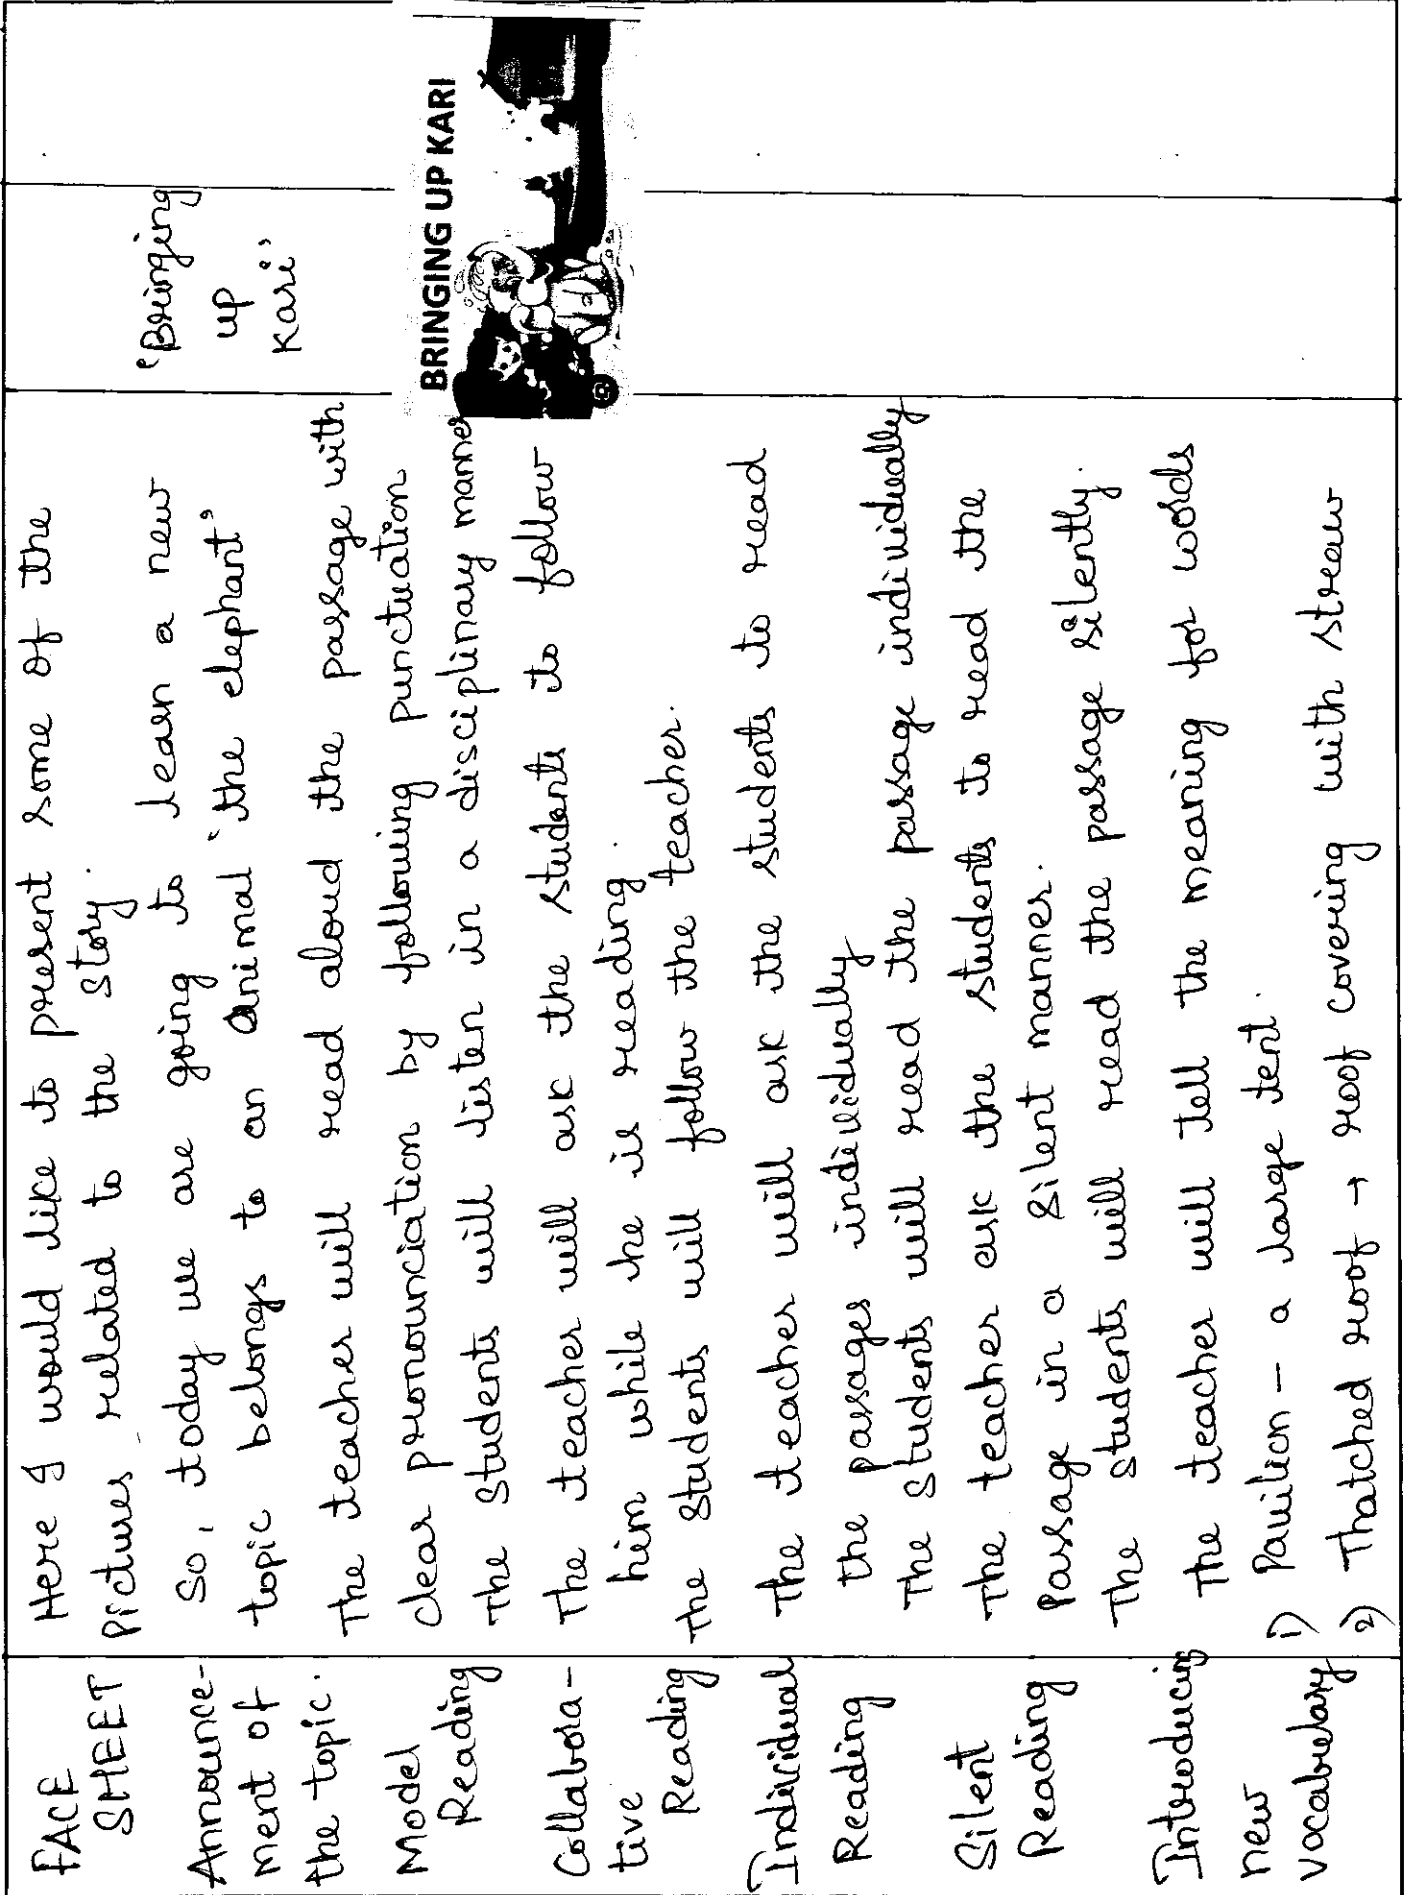 FACE
SHEET
Here I would like to present some of the
Pictures related to the story.
Announce-
ment of
the topic.
So, today we are going to learn a new
topic belongs to an animal "the elephant"
"Bringing
up
Kari"
Model
Reading
The teacher will read aloud the passage with
clear pronounciation by following punctuation
The students will listen in a disciplinary manner
BRINGING UP KARI
Collabora-
tive
Reading
The teacher will ask the students to follow
him while he is reading.
The students will follow the teacher.
Individual
Reading
The teacher will ask the students to read
the passages individually
The students will read the passage individually
Silent
Reading
The teacher ask the students to read the
Passage in a silent manner.
The students will read the passage silently.
Introducing
new
vocabulary
The teacher will tell the meaning for words
1) Pavilion - a large tent.
2) Thatched roof → roof covering with straw